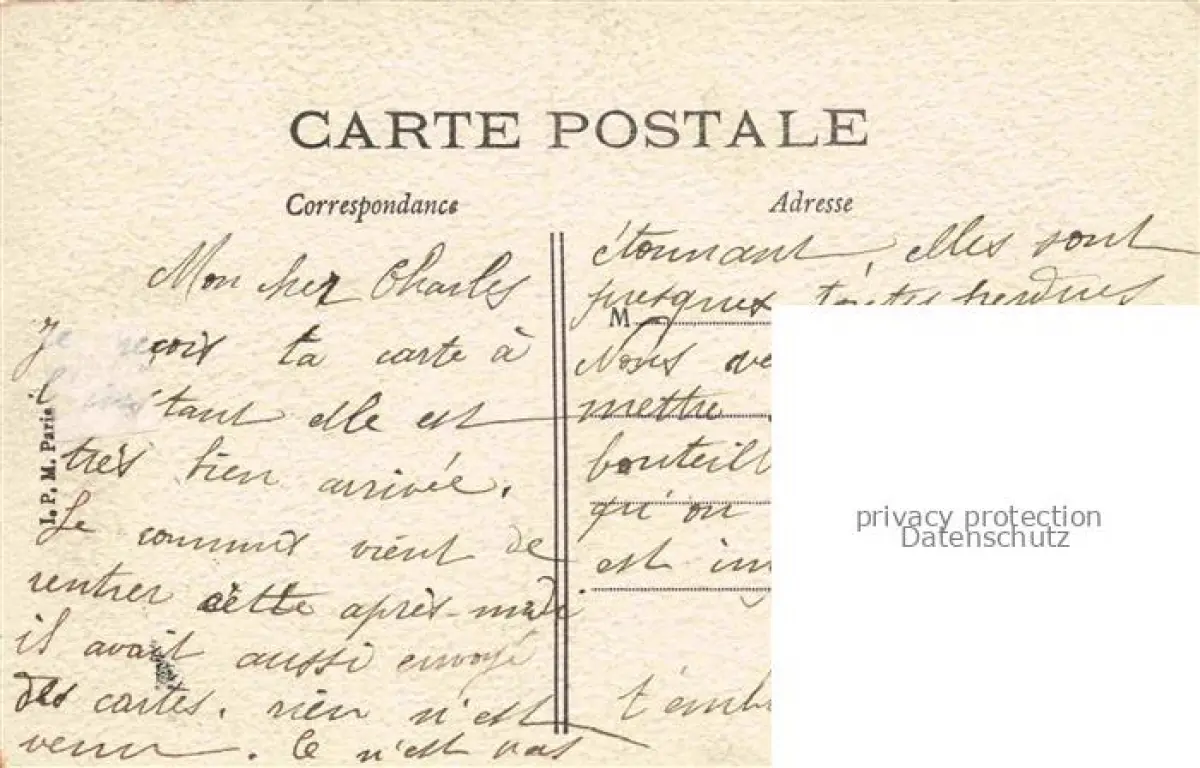 CARTE POSTALE
Correspondance
Mon cher Charles
Je reçois ta carte à
l'instant elle est
très bien arrivée.
Le commis vient de
rentrer cette après-midi
il avait aussi envoyé
des cartes. rien n'est
venu. Ce n'est pas
I. P. M. Paris
Adresse
étonnant, elles sont
presques toutes perdues
M
Nous
mettre
bouteill
qu'on
est im
t'emb
privacy protection
Datenschutz